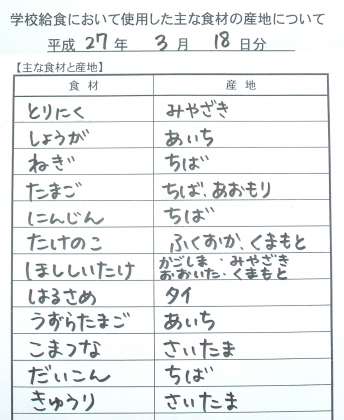 学校給食において使用した主な食材の産地について
平成 27 年 3 月 18 日分
【主な食材と産地】
食材 産地
とりにく みやざき
しょうが あいち
ねぎ ちば
たまご ちば、あおもり
にんじん ちば
たけのこ ふくおか、くまもと
ほししいたけ かごしま・みやざき
おおいた・くまもと
はるさめ タイ
うずらたまご あいち
こまつな さいたま
だいこん ちば
きゅうり さいたま